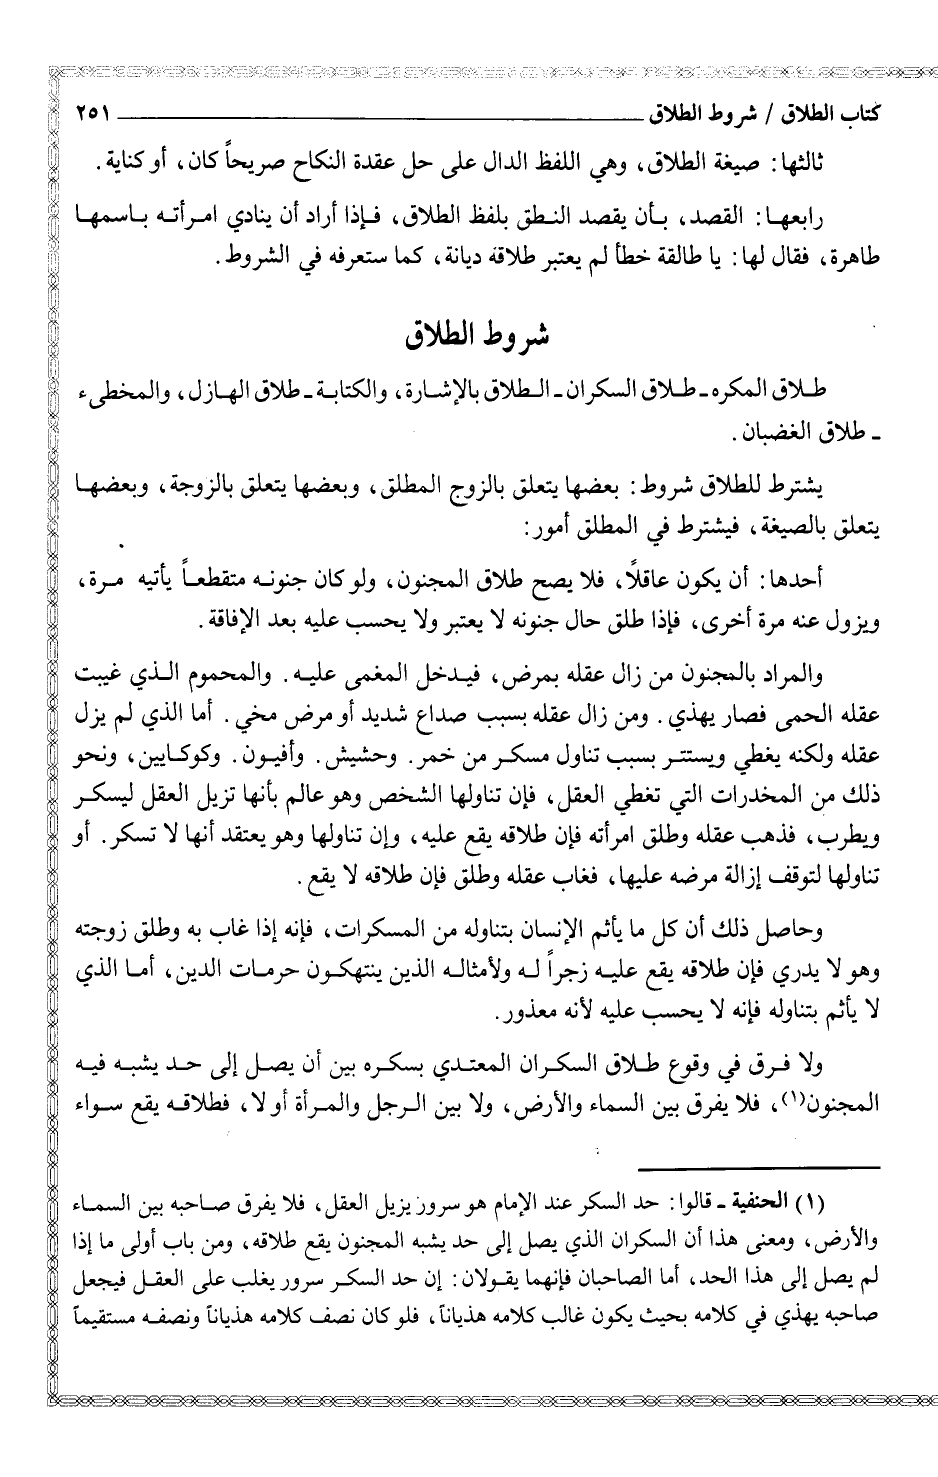 كتاب الطلاق / شروط الطلاق ٢٥١
ثالثها: صيغة الطلاق، وهي اللفظ الدال على حل عقدة النكاح صريحاً كان، أو كناية.
رابعها: القصد، بأن يقصد النطق بلفظ الطلاق، فإذا أراد أن ينادي امرأته باسمها
طاهرة، فقال لها: يا طالقة خطأ لم يعتبر طلاقه ديانة، كما ستعرفه في الشروط.
شروط الطلاق
طلاق المكره ـ طلاق السكران ـ الطلاق بالإشارة، والكتابة ـ طلاق الهازل، والمخطىء
ـ طلاق الغضبان.
يشترط للطلاق شروط: بعضها يتعلق بالزوج المطلق، وبعضها يتعلق بالزوجة، وبعضها
يتعلق بالصيغة، فيشترط في المطلق أمور:
أحدها: أن يكون عاقلاً، فلا يصح طلاق المجنون، ولو كان جنونه متقطعاً يأتيه مرة،
ويزول عنه مرة أخرى، فإذا طلق حال جنونه لا يعتبر ولا يحسب عليه بعد الإفاقة.
والمراد بالمجنون من زال عقله بمرض، فيدخل المغمى عليه. والمحموم الذي غيبت
عقله الحمى فصار يهذي. ومن زال عقله بسبب صداع شديد أو مرض مخي. أما الذي لم يزل
عقله ولكنه يغطي ويستتر بسبب تناول مسكر من خمر. وحشيش. وأفيون. وكوكايين، ونحو
ذلك من المخدرات التي تغطي العقل، فإن تناولها الشخص وهو عالم بأنها تزيل العقل ليسكر
ويطرب، فذهب عقله وطلق امرأته فإن طلاقه يقع عليه، وإن تناولها وهو يعتقد أنها لا تسكر. أو
تناولها لتوقف إزالة مرضه عليها، فغاب عقله وطلق فإن طلاقه لا يقع.
وحاصل ذلك أن كل ما يأثم الإنسان بتناوله من المسكرات، فإنه إذا غاب به وطلق زوجته
وهو لا يدري فإن طلاقه يقع عليه زجراً له ولأمثاله الذين ينتهكون حرمات الدين، أما الذي
لا يأثم بتناوله فإنه لا يحسب عليه لأنه معذور.
ولا فرق في وقوع طلاق السكران المعتدي بسكره بين أن يصل إلى حد يشبه فيه
المجنون(١)، فلا يفرق بين السماء والأرض، ولا بين الرجل والمرأة أو لا، فطلاقه يقع سواء
(١) الحنفية ـ قالوا: حد السكر عند الإمام هو سرور يزيل العقل، فلا يفرق صاحبه بين السماء
والأرض، ومعنى هذا أن السكران الذي يصل إلى حد يشبه المجنون يقع طلاقه، ومن باب أولى ما إذا
لم يصل إلى هذا الحد، أما الصاحبان فإنهما يقولان: إن حد السكر سرور يغلب على العقل فيجعل
صاحبه يهذي في كلامه بحيث يكون غالب كلامه هذياناً، فلو كان نصف كلامه هذياناً ونصفه مستقيماً